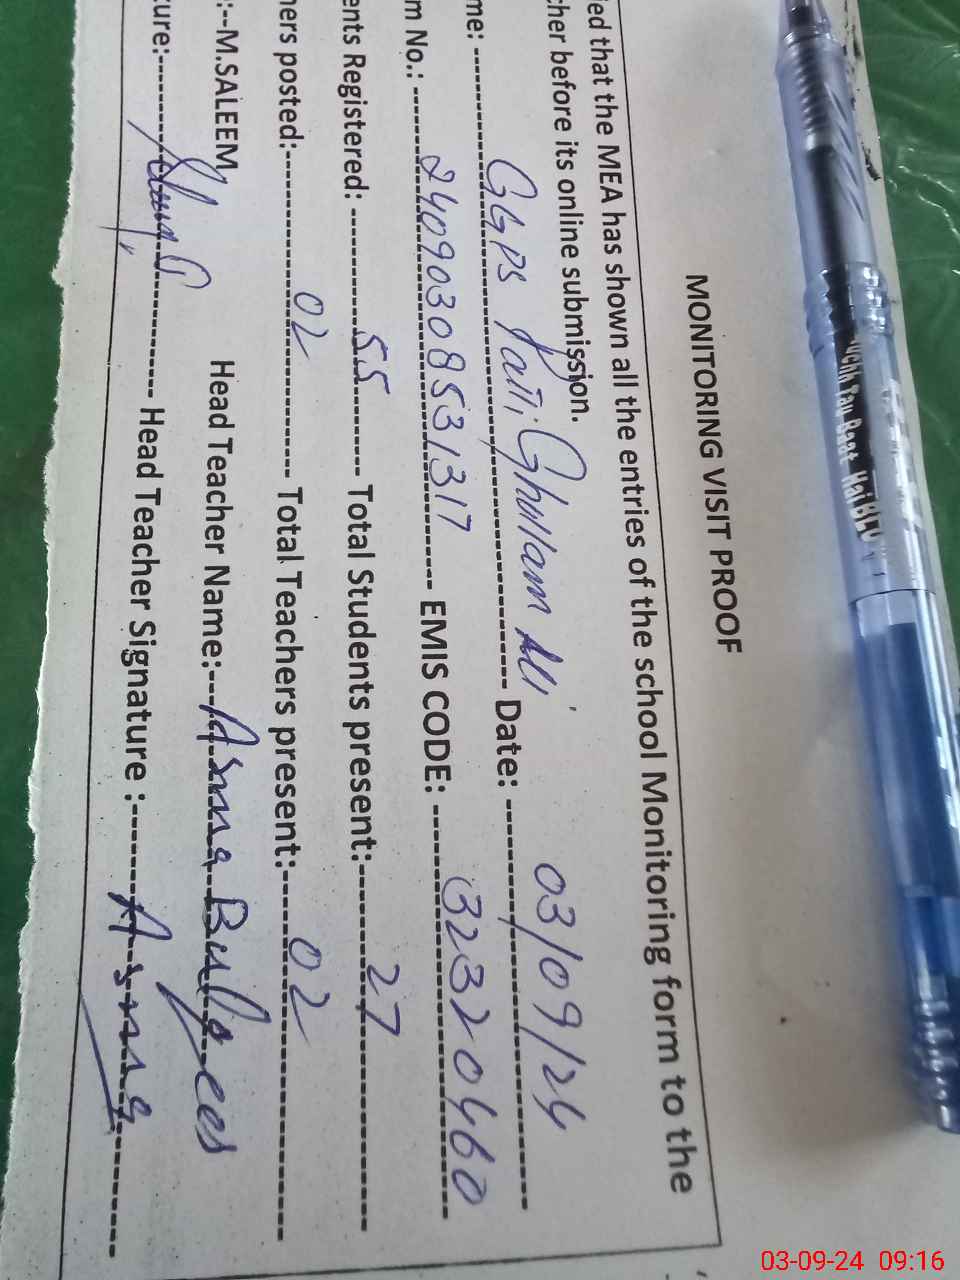 MONITORING VISIT PROOF
ied that the MEA has shown all the entries of the school Monitoring form to the
cher before its online submission.
me: GGPS Patti Ghullam Ali Date: 03/09/24
m No.: 24090308531317 EMIS CODE: 32320460
ents Registered: 55 Total Students present: 27
hers posted: 02 Total Teachers present: 02
:--M.SALEEM Head Teacher Name: Asma Bulqees
ture: Head Teacher Signature : Asma
03-09-24 09:16